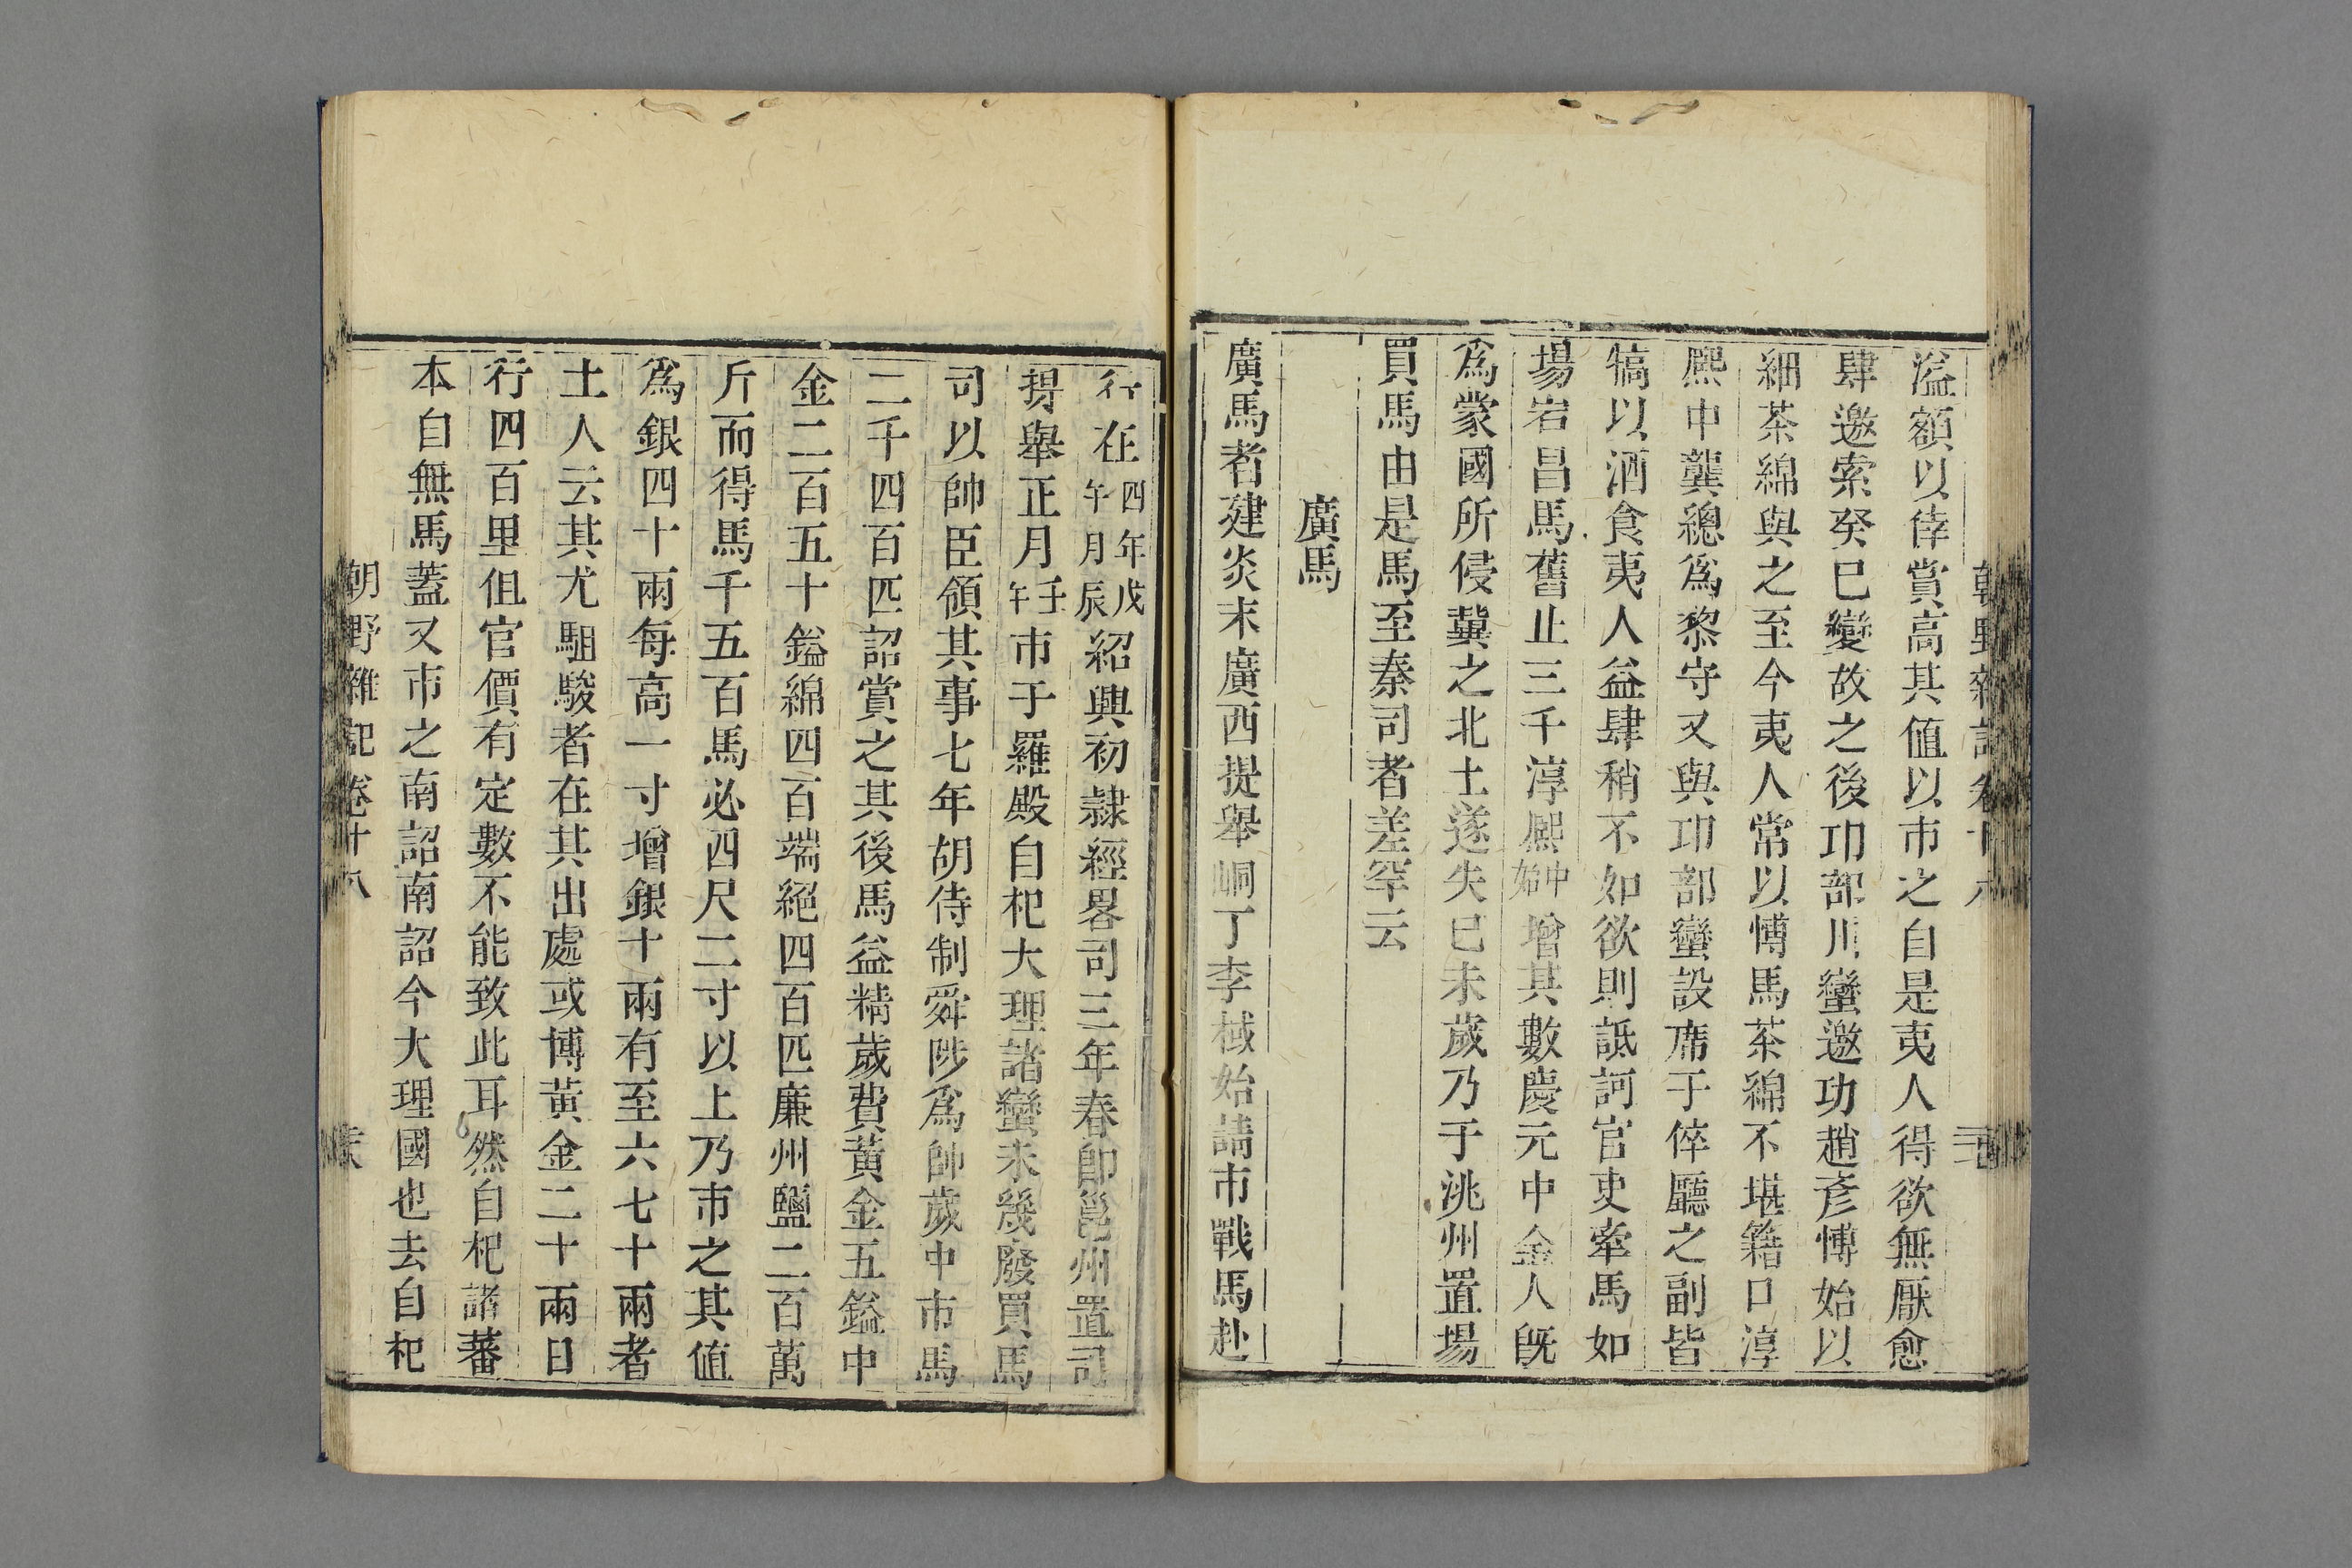 溢額以倖賞高其値以市之自是夷人得欲無厭愈
肆邀索癸巳變故之後邛部川蠻邀功趙彥愽始以
細茶綿與之至今夷人常以愽馬茶綿不堪籍口淳
熈中龔總爲黎守又與邛部蠻設席于倅廳之副皆
犒以酒食夷人益肆稍不如欲則詆訶官吏牽馬如
場宕昌馬舊止三千淳熈中始增其數慶元中金人旣
爲蒙國所侵冀之北土遂失已未歲乃于洮州置場
買馬由是馬至秦司者差罕云
廣馬
廣馬者建炎末廣西提舉峒丁李棫始請市戰馬赴
行在四年戊午月辰紹興初隷經畧司三年春卽邕州置司
提舉正月壬午市于羅殿自杞大理諸蠻未幾廢買馬
司以帥臣領其事七年胡待制舜陟爲帥歲中市馬
二千四百匹詔賞之其後馬益精歲費黃金五鎰中
金二百五十鎰綿四百端絕四百匹廉州鹽二百萬
斤而得馬千五百馬必四尺二寸以上乃市之其値
爲銀四十兩每高一寸增銀十兩有至六七十兩者
土人云其尤駔駿者在其出處或博黃金二十兩日
行四百里但官價有定數不能致此耳然自杞諸蕃
本自無馬蓋又市之南詔南詔今大理國也去自杞
朝野雜記卷十八